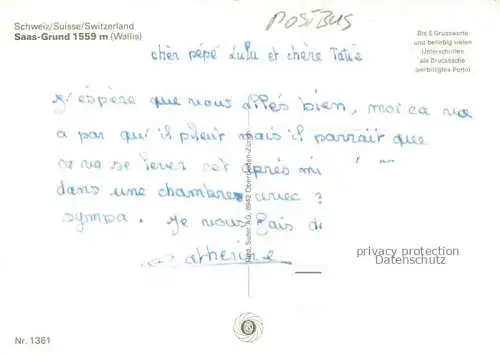 Schweiz/Suisse/Switzerland
Saas-Grund 1559 m (Wallis)
POSTBUS
Bis 5 Grussworte
und beliebig vielen
Unterschriften
als Drucksache
(verbilligtes Porto)
chèr pépé Lulu et chère Tatie
J'éspère que vous allés bien, moi ca va
a par qu'il pleut mais il parraît que
ca va se lever cet après mi
dans une chambre avec ?
sympa. Je vous fais de
Catherine
privacy protection
Datenschutz
Nr. 1361